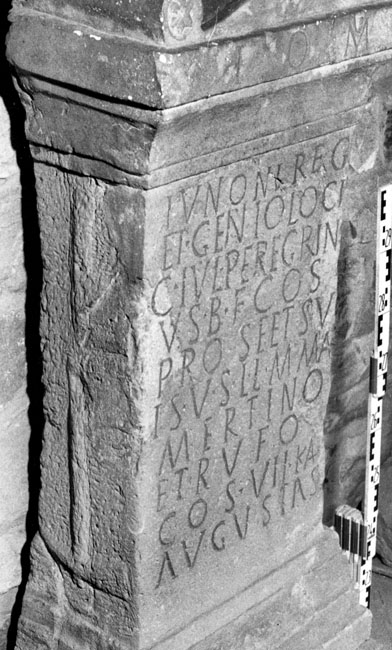 I O M
IVNONI REG
ET·GENIO LOCI
C·IVL PEREGRIN
VS B·F COS
PRO SE ET SV
IS V S LL·M·MA
MERTINO
ET RVFO
COS·VII·KA
AVGVSTAS